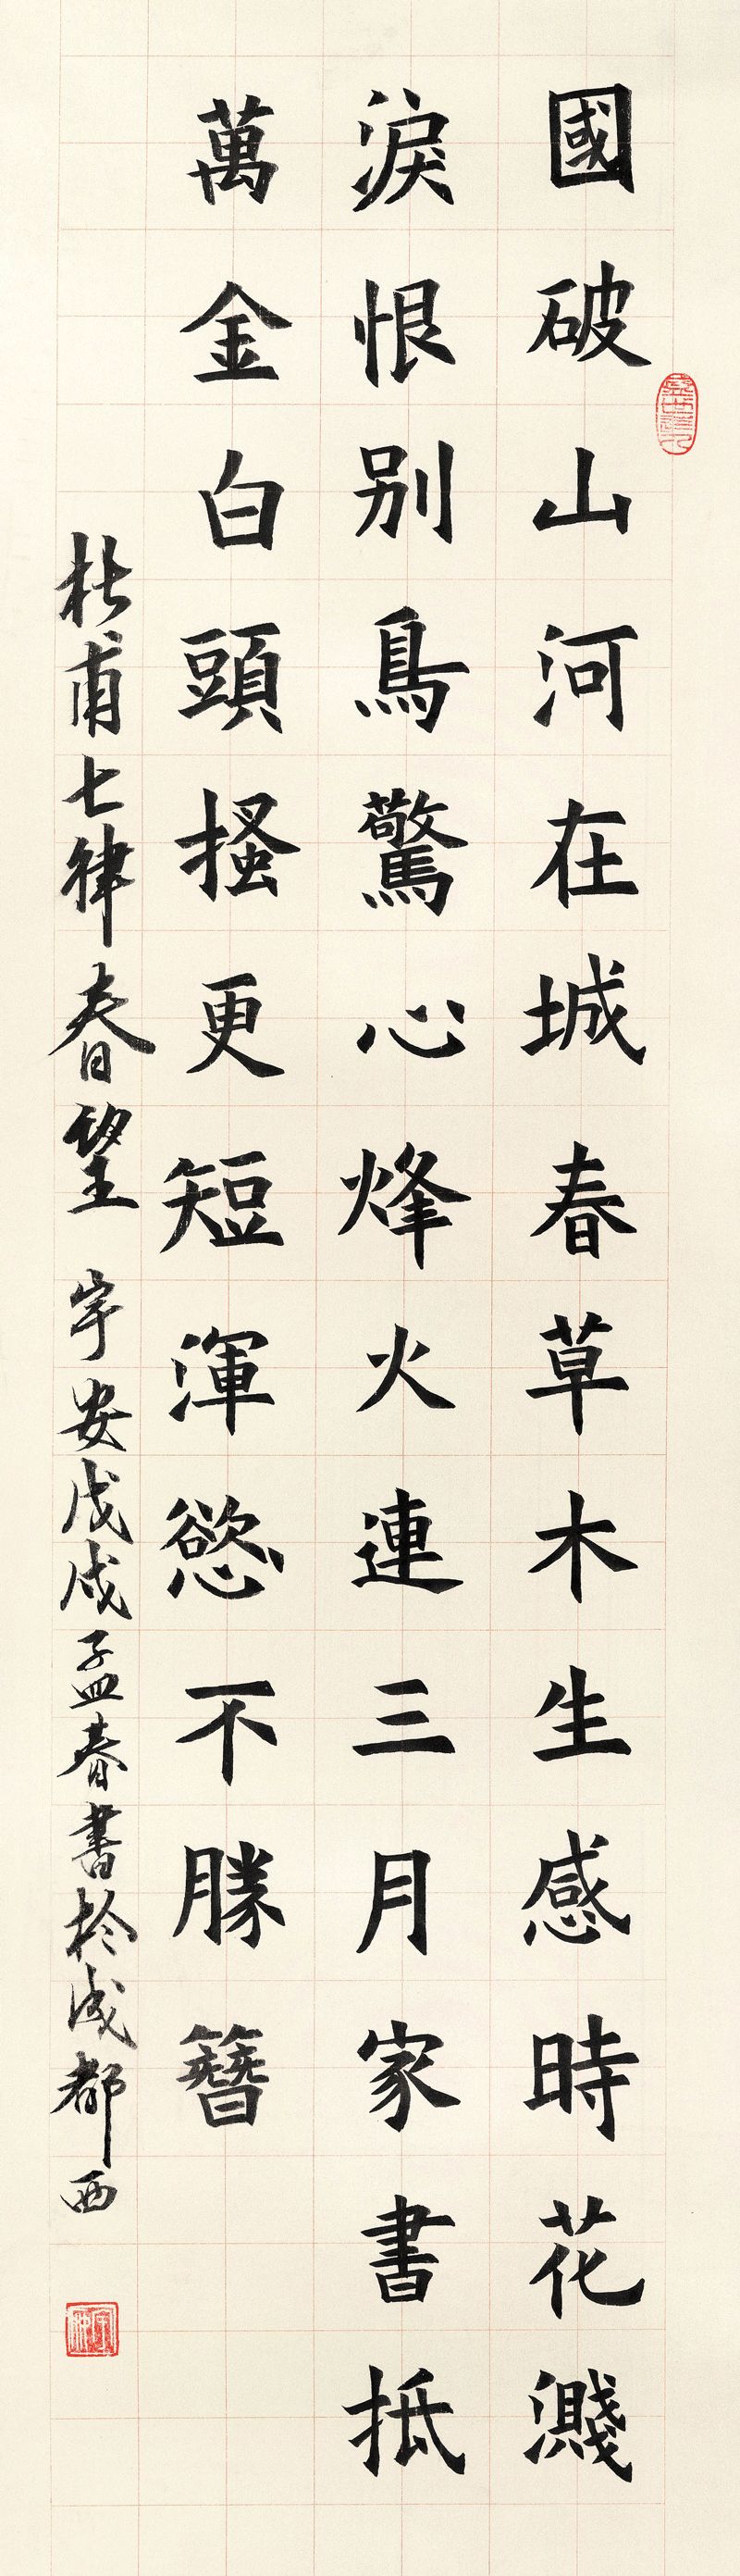 國破山河在城春草木生感時花濺
淚恨别鳥驚心烽火連三月家書抵
萬金白頭搔更短渾慾不勝簪
杜甫七律春望 宇安戊戌孟春書於成都西